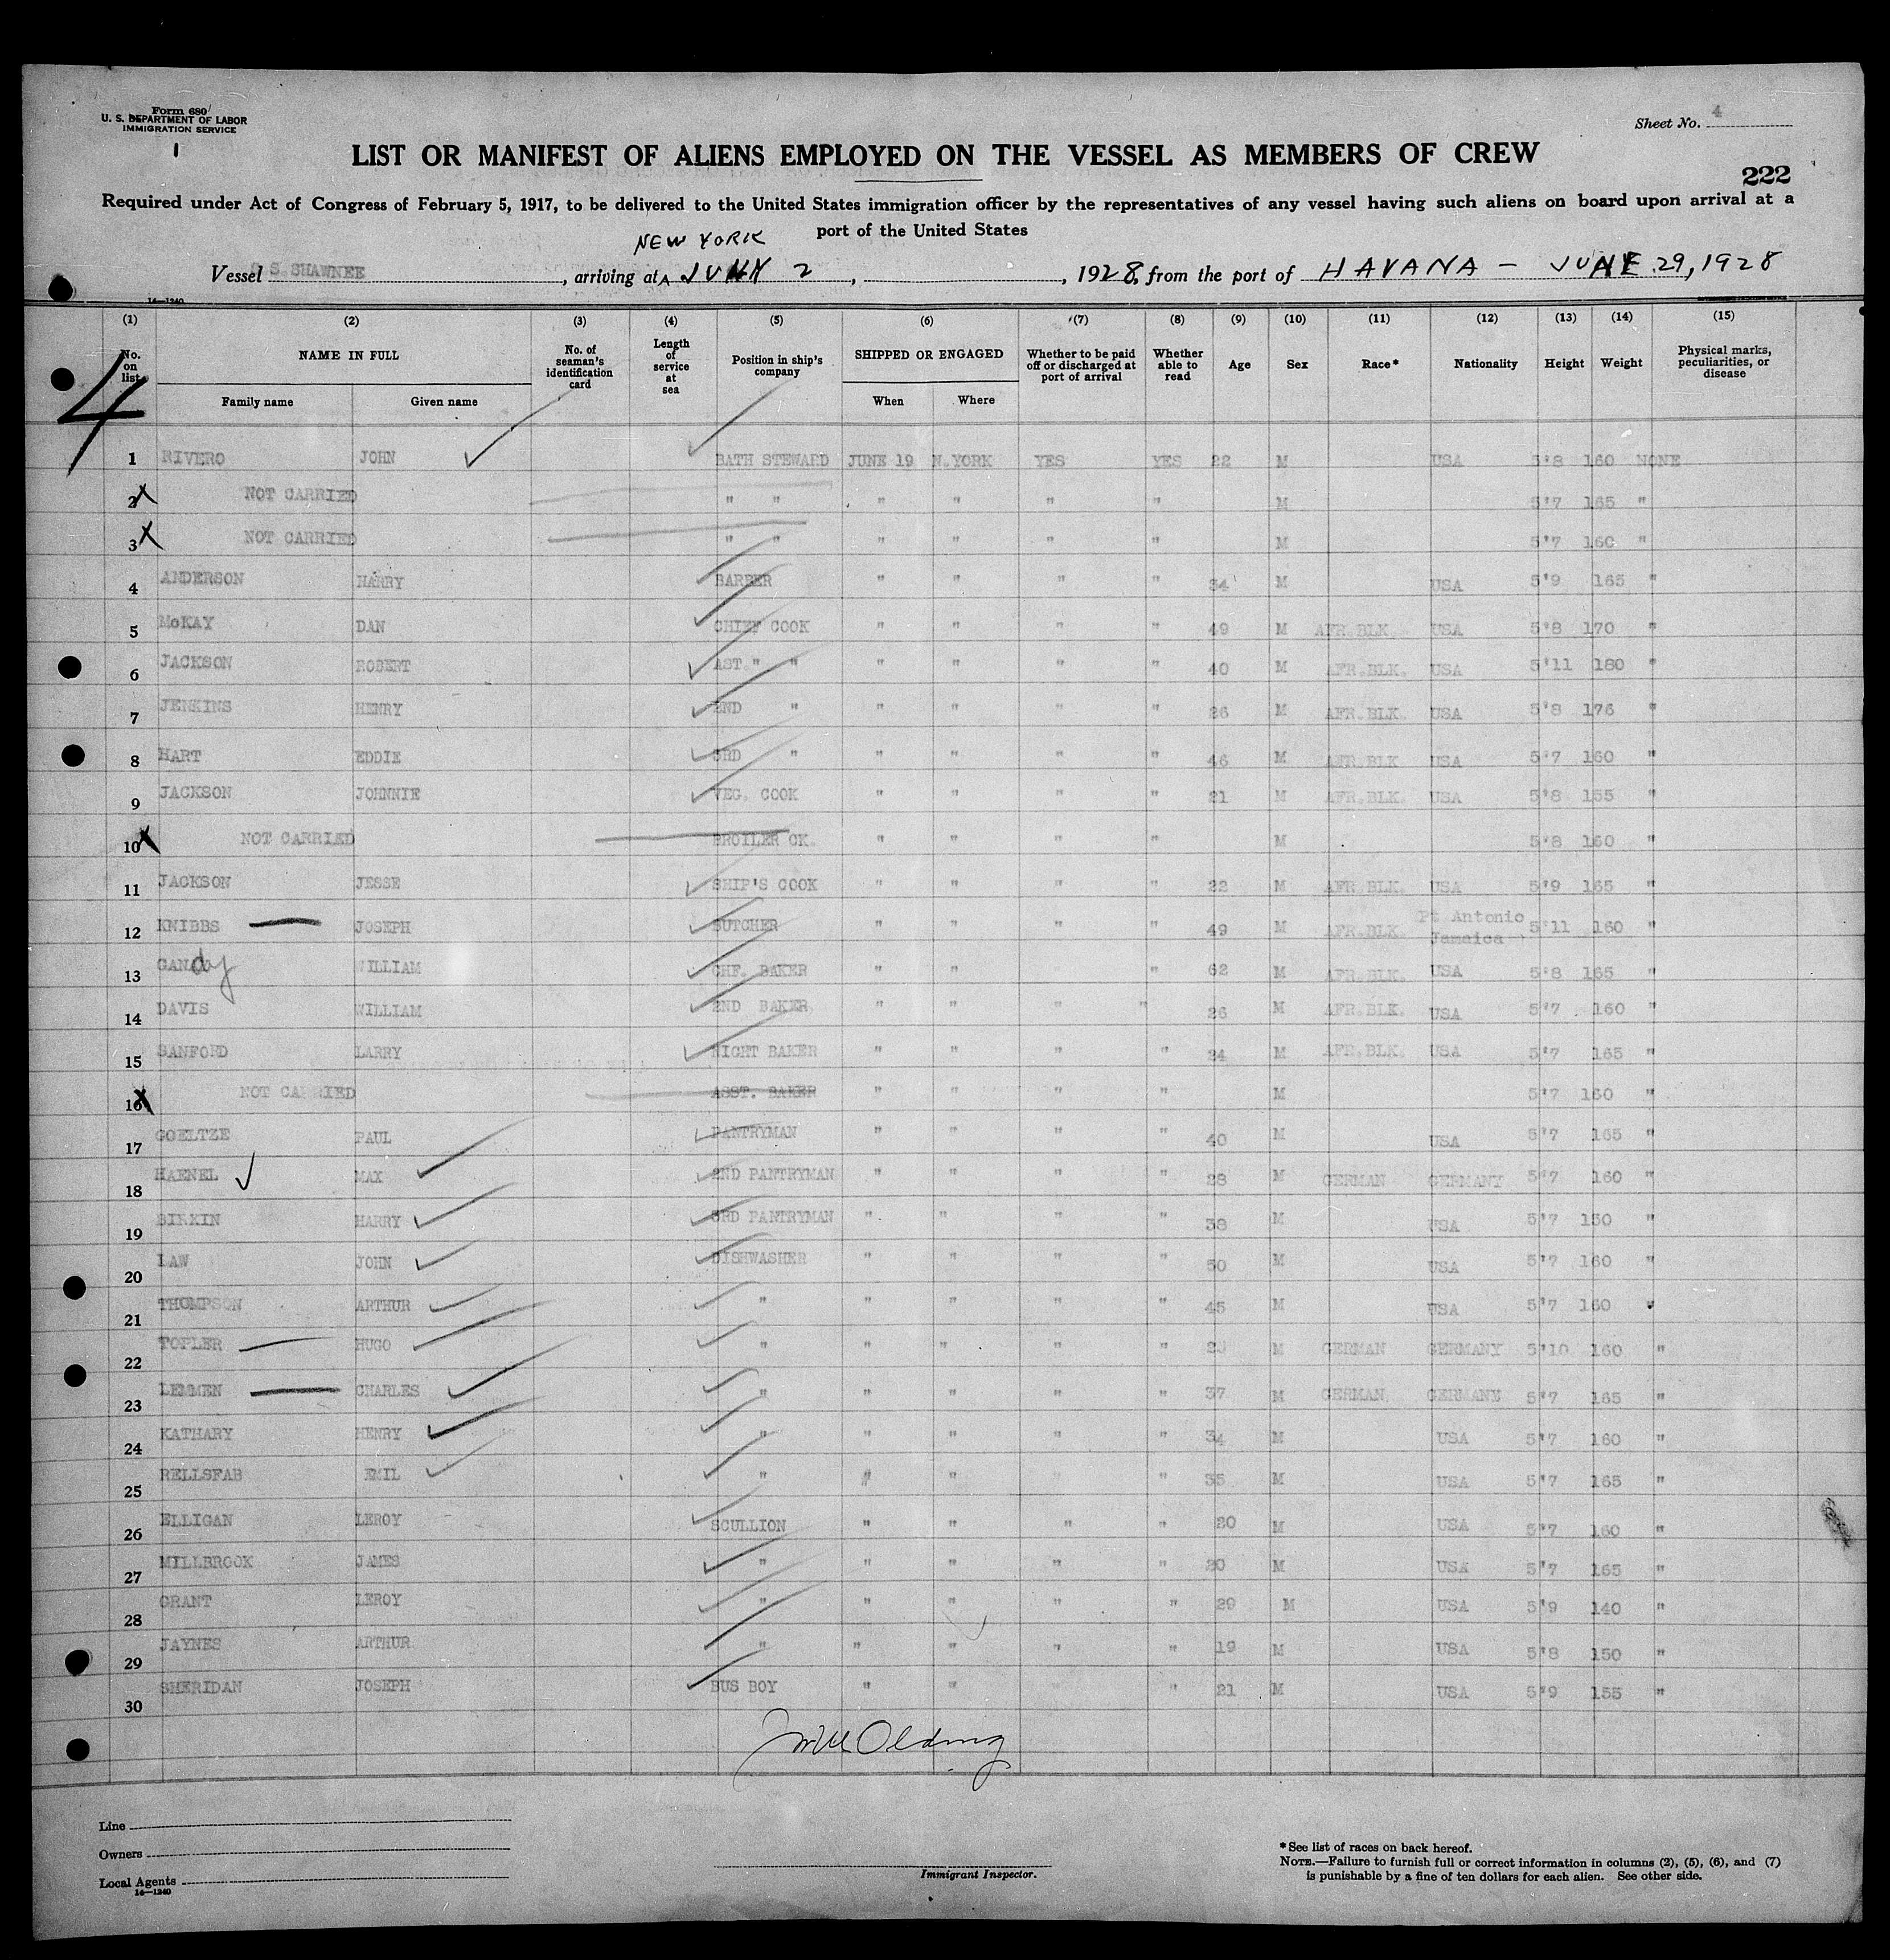 Form 680
U. S. DEPARTMENT OF LABOR
IMMIGRATION SERVICE
1
Sheet No. 4
LIST OR MANIFEST OF ALIENS EMPLOYED ON THE VESSEL AS MEMBERS OF CREW
222
Required under Act of Congress of February 5, 1917, to be delivered to the United States immigration officer by the representatives of any vessel having such aliens on board upon arrival at a
port of the United States
NEW YORK
Vessel S.S. SHAWNEE, arriving at 2, 1928, from the port of HAVANA - JUNE 29, 1928
14—1240
(1) (2) (3) (4) (5) (6) (7) (8) (9) (10) (11) (12) (13) (14) (15)
No. on list NAME IN FULL Family name Given name No. of seaman's identification card Length of service at sea Position in ship's company SHIPPED OR ENGAGED When Where Whether to be paid off or discharged at port of arrival Whether able to read Age Sex Race* Nationality Height Weight Physical marks, peculiarities, or disease
4
1 RIVERO JOHN BATH STEWARD JUNE 19 N.YORK YES YES 22 M USA 5'8 160 NONE
2 NOT CARRIED " " " " " " M 5'7 165 "
3 NOT CARRIED " " " " " " M 5'7 160 "
4 ANDERSON HARRY BARBER " " " " 34 M USA 5'9 165 "
5 McKAY DAN CHIEF COOK " " " " 49 M AFR.BLK. USA 5'8 170 "
6 JACKSON ROBERT AST." " " " " " 40 M AFR.BLK. USA 5'11 180 "
7 JENKINS HENRY 2ND " " " " " 26 M AFR.BLK. USA 5'8 176 "
8 HART EDDIE 3RD " " " " " 46 M AFR.BLK USA 5'7 160 "
9 JACKSON JOHNNIE VEG. COOK " " " " 21 M AFR.BLK. USA 5'8 155 "
10 NOT CARRIED BROILER CK. " " " " M 5'8 160 "
11 JACKSON JESSE SHIP'S COOK " " " " 22 M AFR.BLK. USA 5'9 165 "
12 KNIBBS JOSEPH BUTCHER " " " " 49 M AFR.BLK. Pt Antonio Jamaica 5'11 160 "
13 GANdy WILLIAM CHF. BAKER " " " 62 M AFR.BLK. USA 5'8 165 "
14 DAVIS WILLIAM 2ND BAKER " " " " 26 M AFR.BLK. USA 5'7 160 "
15 SANFORD LARRY NIGHT BAKER " " " " 24 M AFR.BLK. USA 5'7 165 "
16 NOT CARRIED ASST. BAKER " " " " M 5'7 160 "
17 GOELTZE PAUL PANTRYMAN " " " " 40 M USA 5'7 165 "
18 HAENEL MAX 2ND PANTRYMAN " " " " 28 M GERMAN GERMANY 5'7 160 "
19 HARRY 3RD PANTRYMAN " " " " 38 M USA 5'7 150 "
20 LAW JOHN DISHWASHER " " " " 50 M USA 5'7 160 "
21 THOMPSON ARTHUR " " " " " 45 M USA 5'7 160 "
22 HUGO " " " " " M GERMAN GERMANY 5'10 160 "
23 LEMMEN CHARLES " " " " " 37 M GERMAN GERMANY 5'7 165 "
24 KATHARY HENRY " " " " " 34 M USA 5'7 160 "
25 RELLSFAB EMIL " " " " " 35 M USA 5'7 165 "
26 ELLIGAN LEROY SCULLION " " " " 20 M USA 5'7 160 "
27 MILLBROOK JAMES " " " " " 20 M USA 5'7 165 "
28 GRANT LEROY " " " " " 29 M USA 5'9 140 "
29 JAYNES ARTHUR " " " " " 19 M USA 5'8 150 "
30 SHERIDAN JOSEPH BUS BOY " " " " 21 M USA 5'9 155 "
Line
Owners
Local Agents
14—1240
Immigrant Inspector.
*See list of races on back hereof.
NOTE.—Failure to furnish full or correct information in columns (2), (5), (6), and (7)
is punishable by a fine of ten dollars for each alien. See other side.